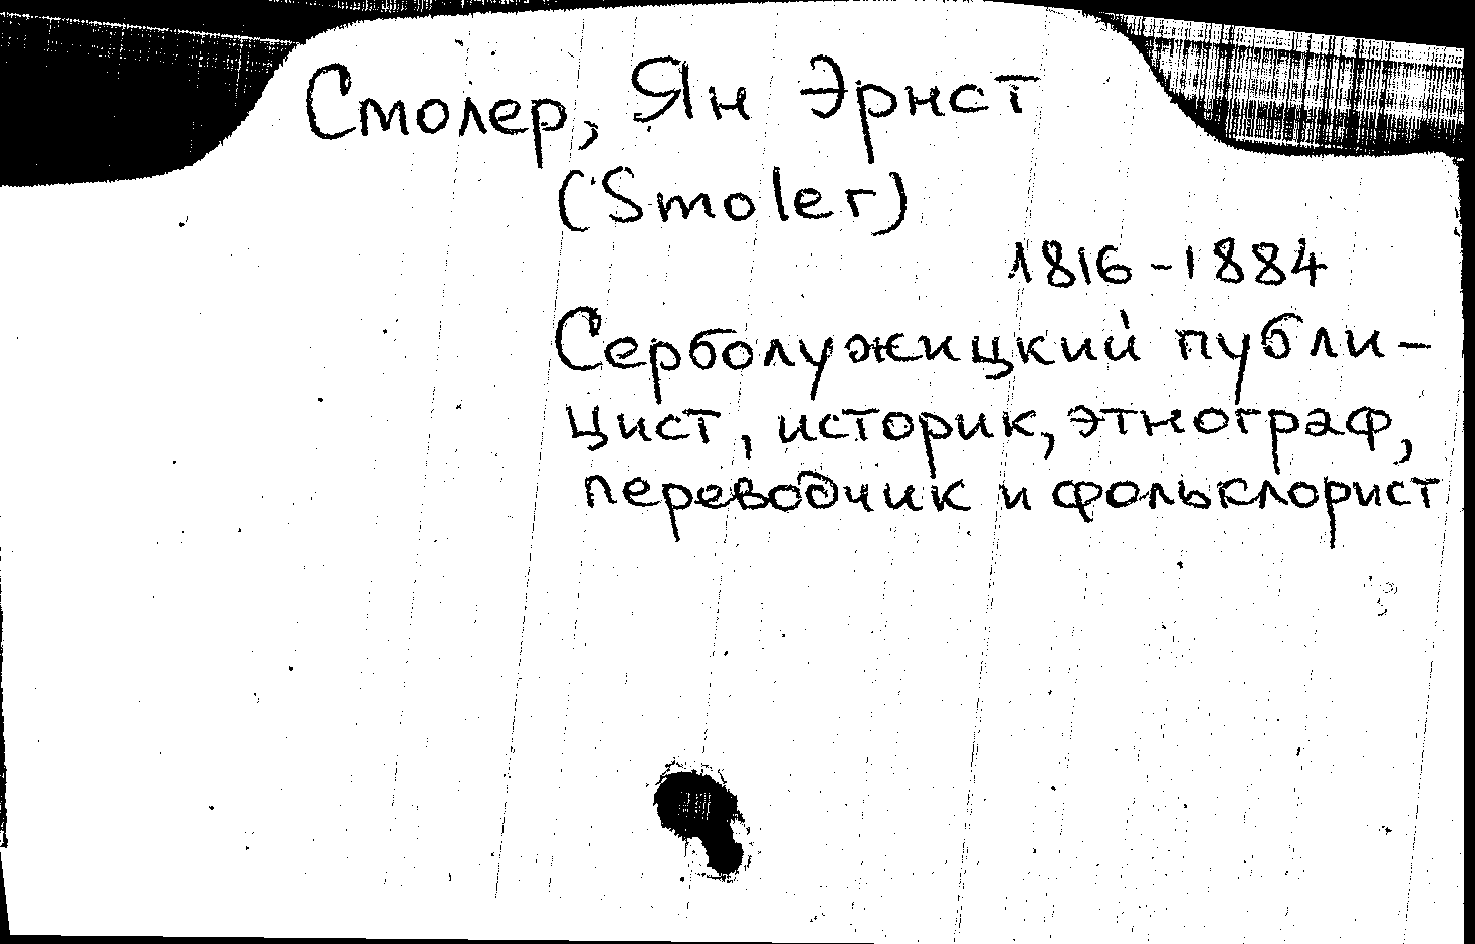 Смолер, Ян Эрнст
(Smoler)
1816-1884
Серболужицкий публи-
цист, историк, этнограф,
переводчик и фольклорист